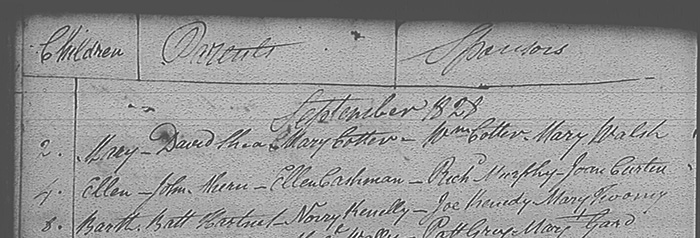 Children Parents Sponsors
September 1828
2. Mary - David Shea & Mary Cotter - Wm Cotter - Mary Walsh
4. Ellen - John - Ellen Cashman - Richd Murphy - Joan Curtin
8. Barth. Batt Hartnet - Norry Kenelly - Joe Kenedy Mary Twomy
Patt Mary